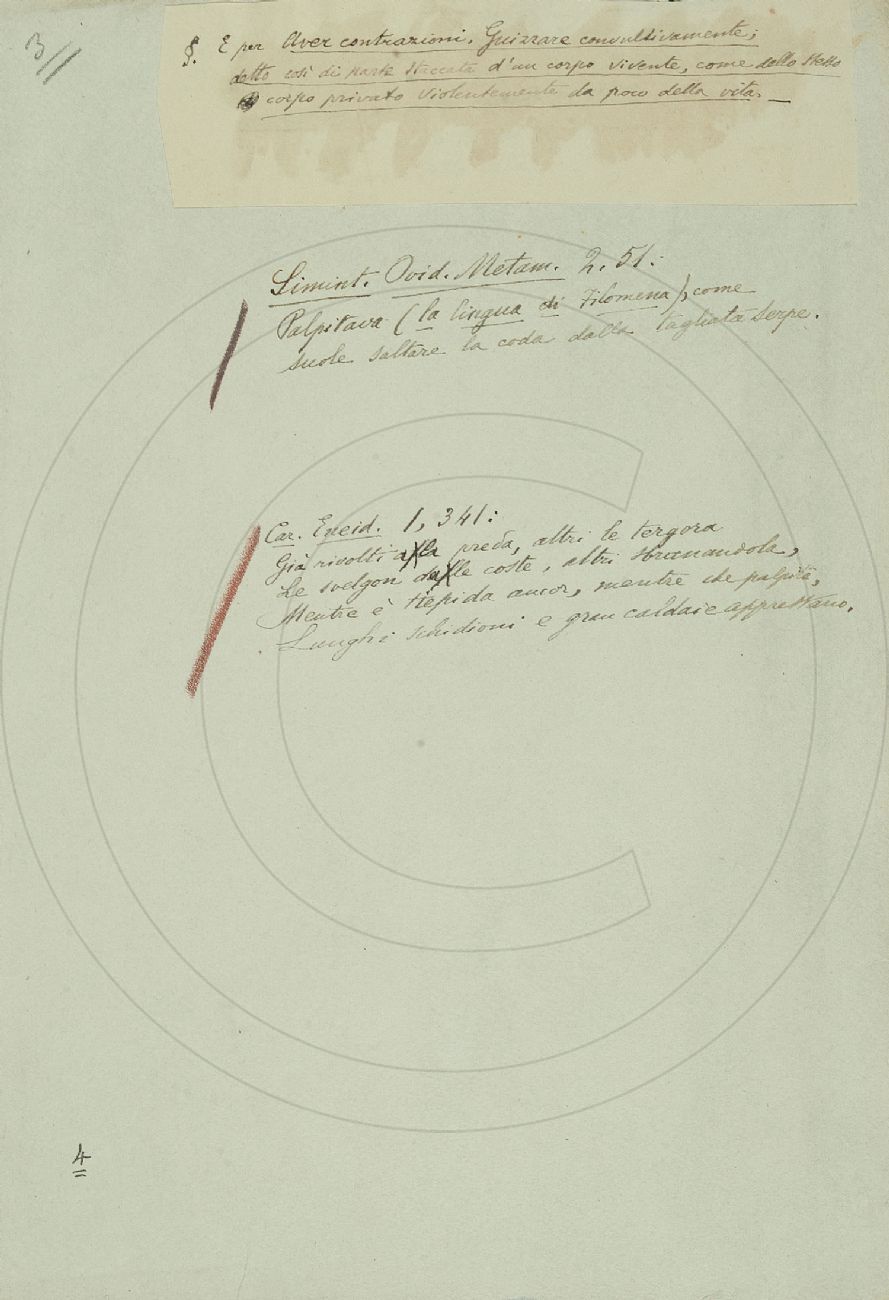 3
§. E per Aver contrazioni, Guizzare convulsivamente;
detto così di parte staccata d'un corpo vivente, come dello stesso
corpo privato violentemente da poco della vita. —
Simint. Ovid. Metam. 2. 51:
Palpitava (la lingua di Filomena), come
suole saltare la coda dalla tagliata serpe.
Car. Eneid. 1, 341:
Già rivolti a la preda, altri le tergora
Le svelgon da le coste, altri sbranandola,
Mentre è tiepida ancor, mentre che palpita,
Lunghi schidioni e gran caldaie apprestano.
4